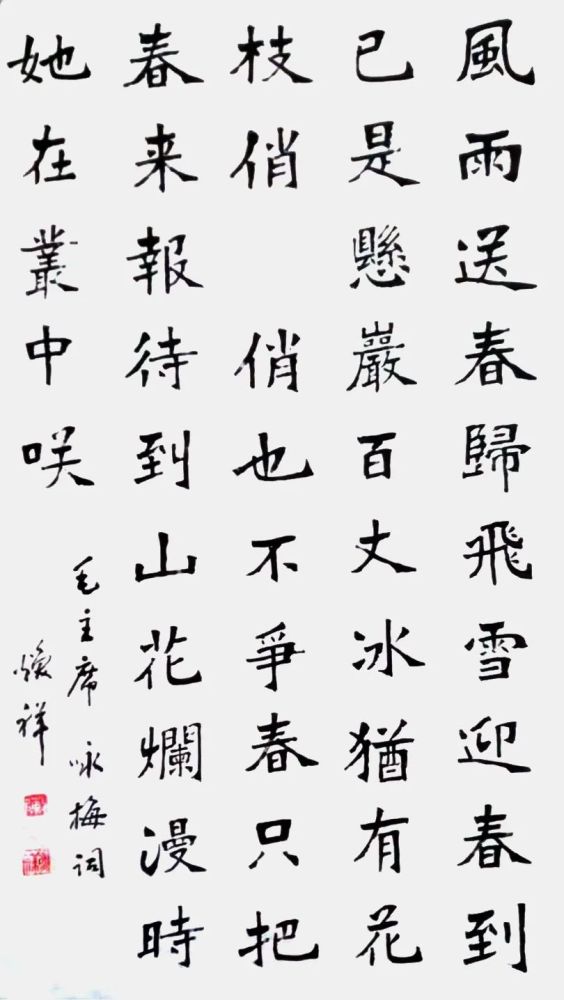 風雨送春歸飛雪迎春到
已是懸巖百丈冰猶有花
枝俏 俏也不爭春只把
春来報待到山花爛漫時
她在叢中咲
毛主席咏梅詞
焕祥